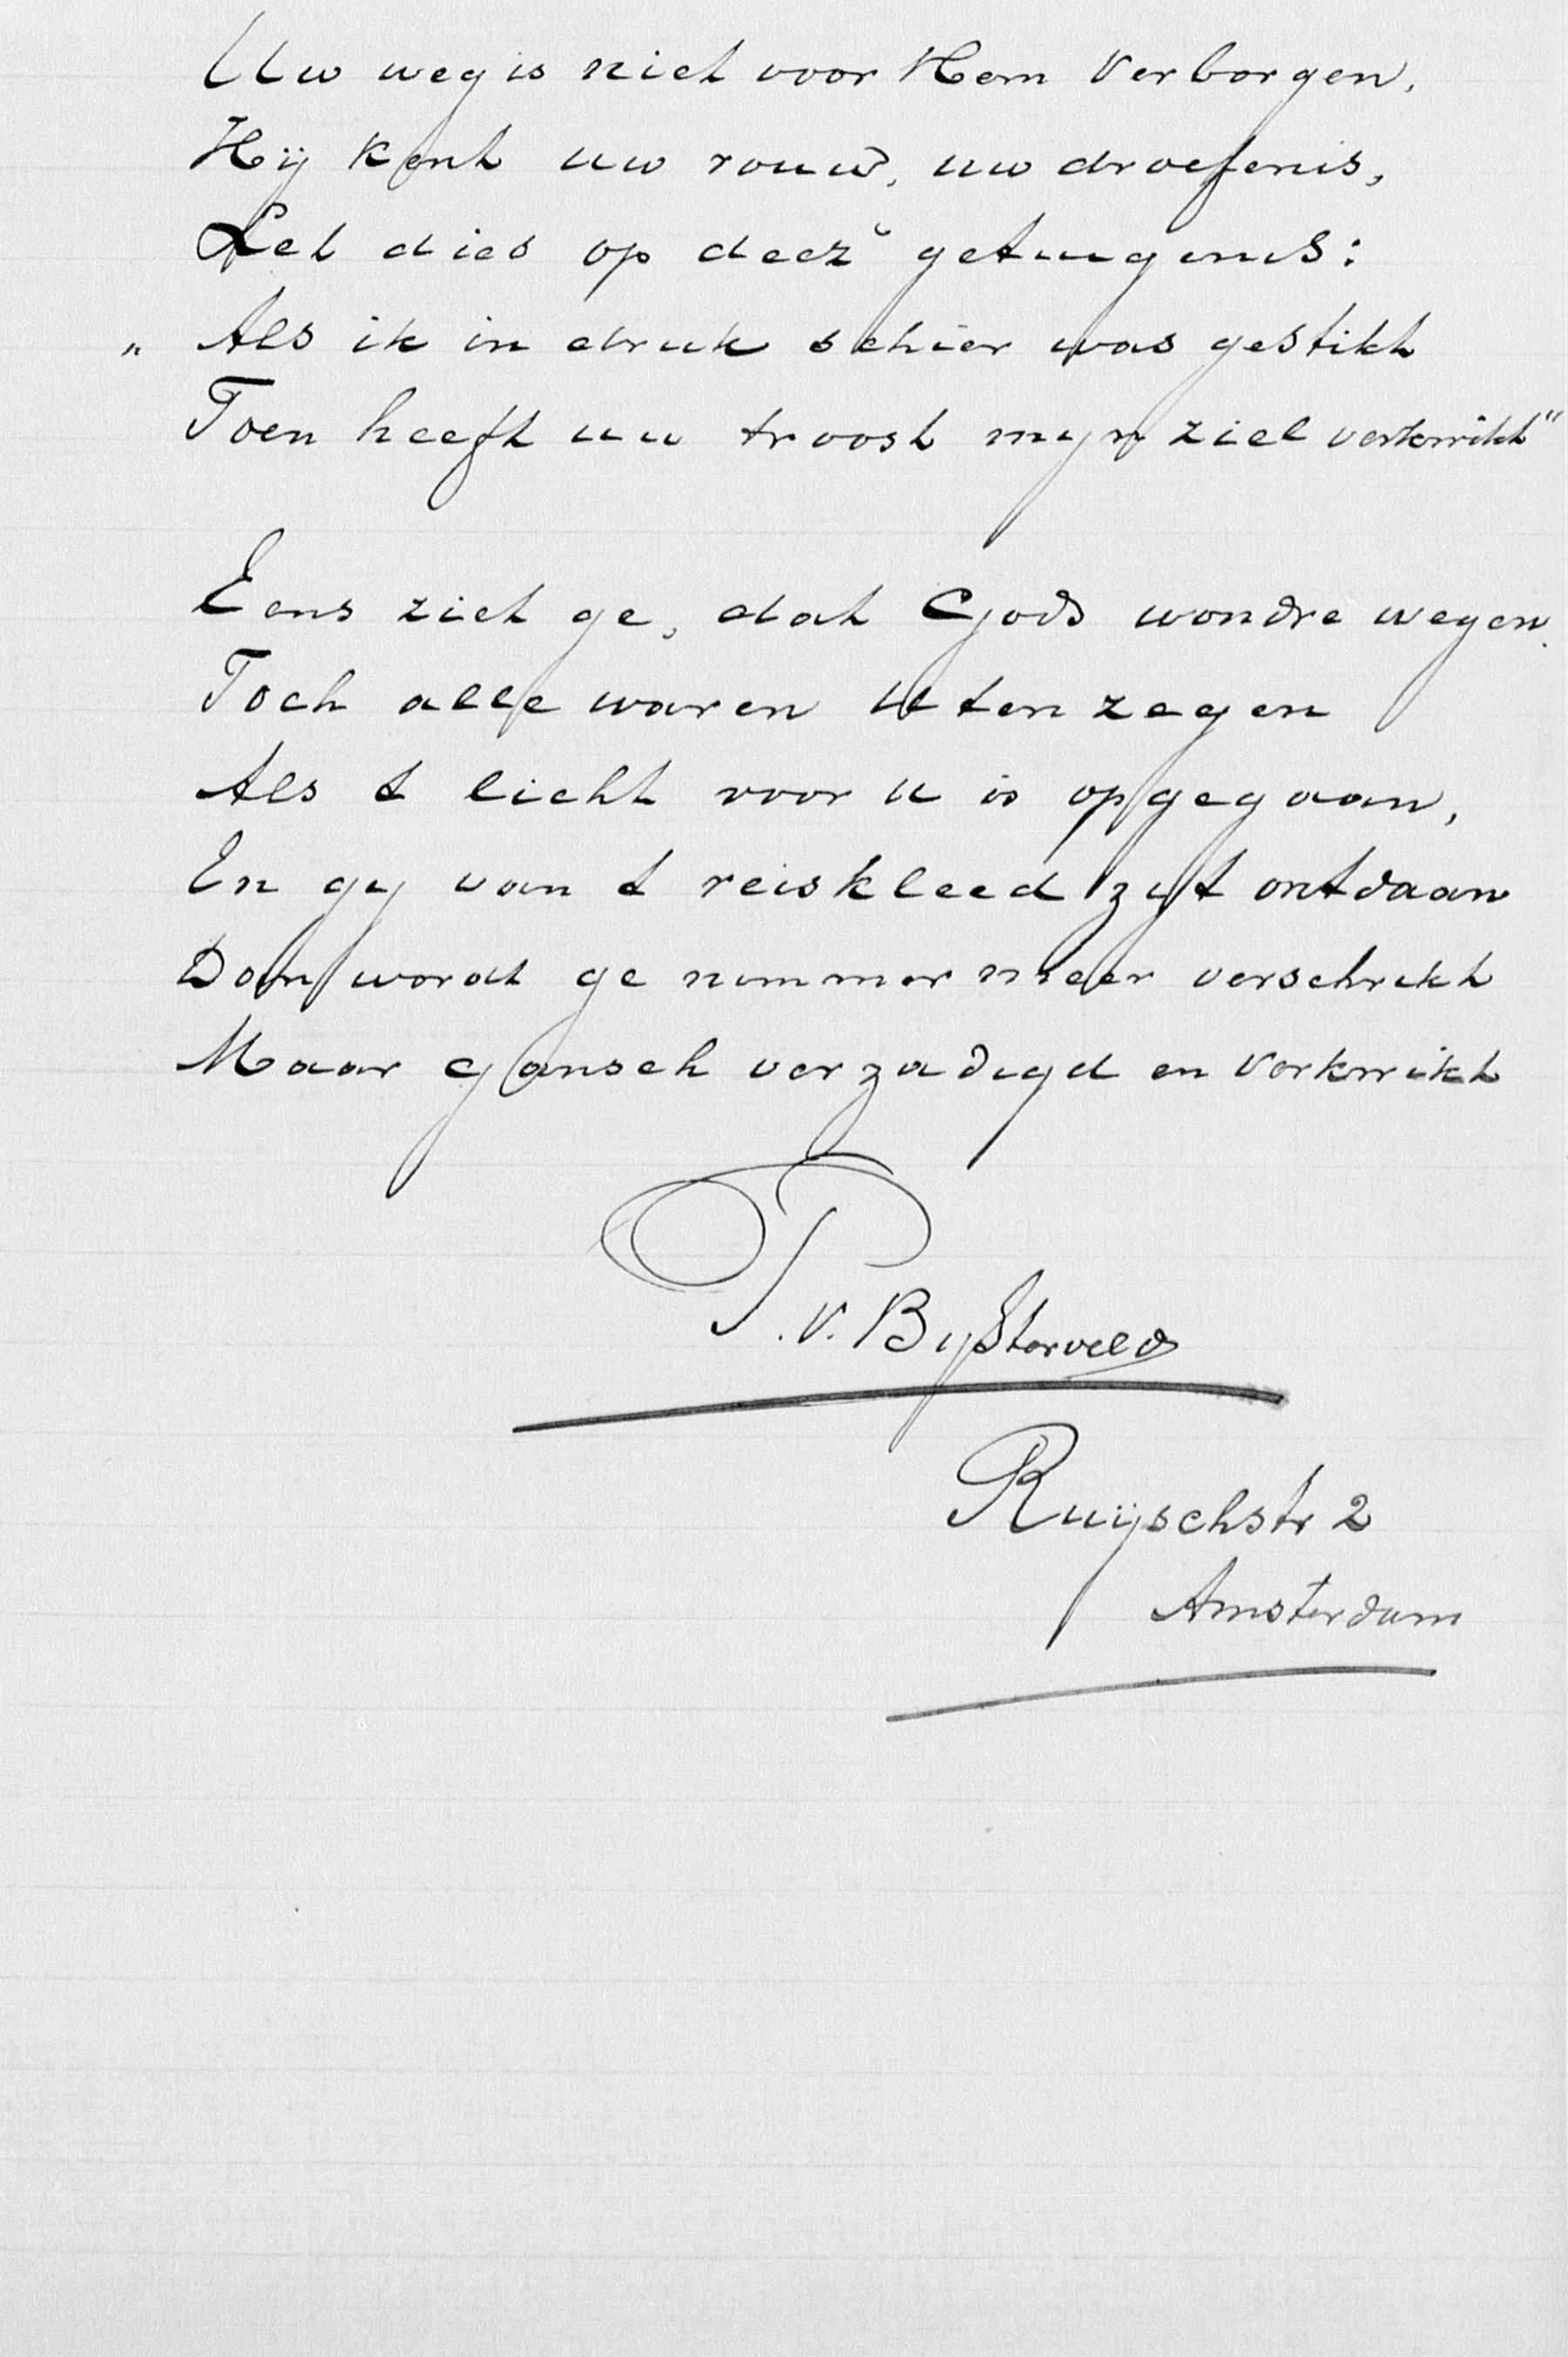 Uw weg is niet voor Hem verborgen,
Hij kent uw rouw, uw droefenis,
Let dies op deez' getuigenis:
„Als ik in druk schier was gestikt
Toen heeft uw troost mijn ziel verkwikt"
Eens ziet ge, dat Gods wondre wegen
Toch alle waren U ten zegen
Als t licht voor u is opgegaan,
En gij van t reiskleed zijt ontdaan
Dan wordt ge nimmer meer verschrikt
Maar gansch verzadigd en verkwikt
P. v. Bijsterveld
Ruijschstr 2
Amsterdam